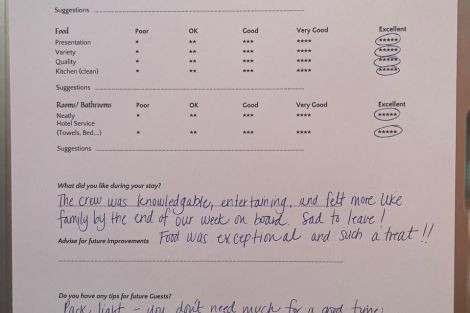 Suggestions
Food Poor OK Good Very Good Excellent
Presentation * ** *** **** *****
Variety * ** *** **** *****
Quality * ** *** **** *****
Kitchen (clean) * ** *** **** *****
Suggestions
Rooms/ Bathrooms Poor OK Good Very Good Excellent
Neatly * ** *** **** *****
Hotel Service
(Towels, Bed,...) * ** *** **** *****
Suggestions
What did you like during your stay?
The crew was knowledgable, entertaining, and felt more like
family by the end of our week on board. Sad to leave!
Advise for future improvements Food was exceptional and such a treat!!
Do you have any tips for future Guests?
Pack light - you don't need much for a good time,